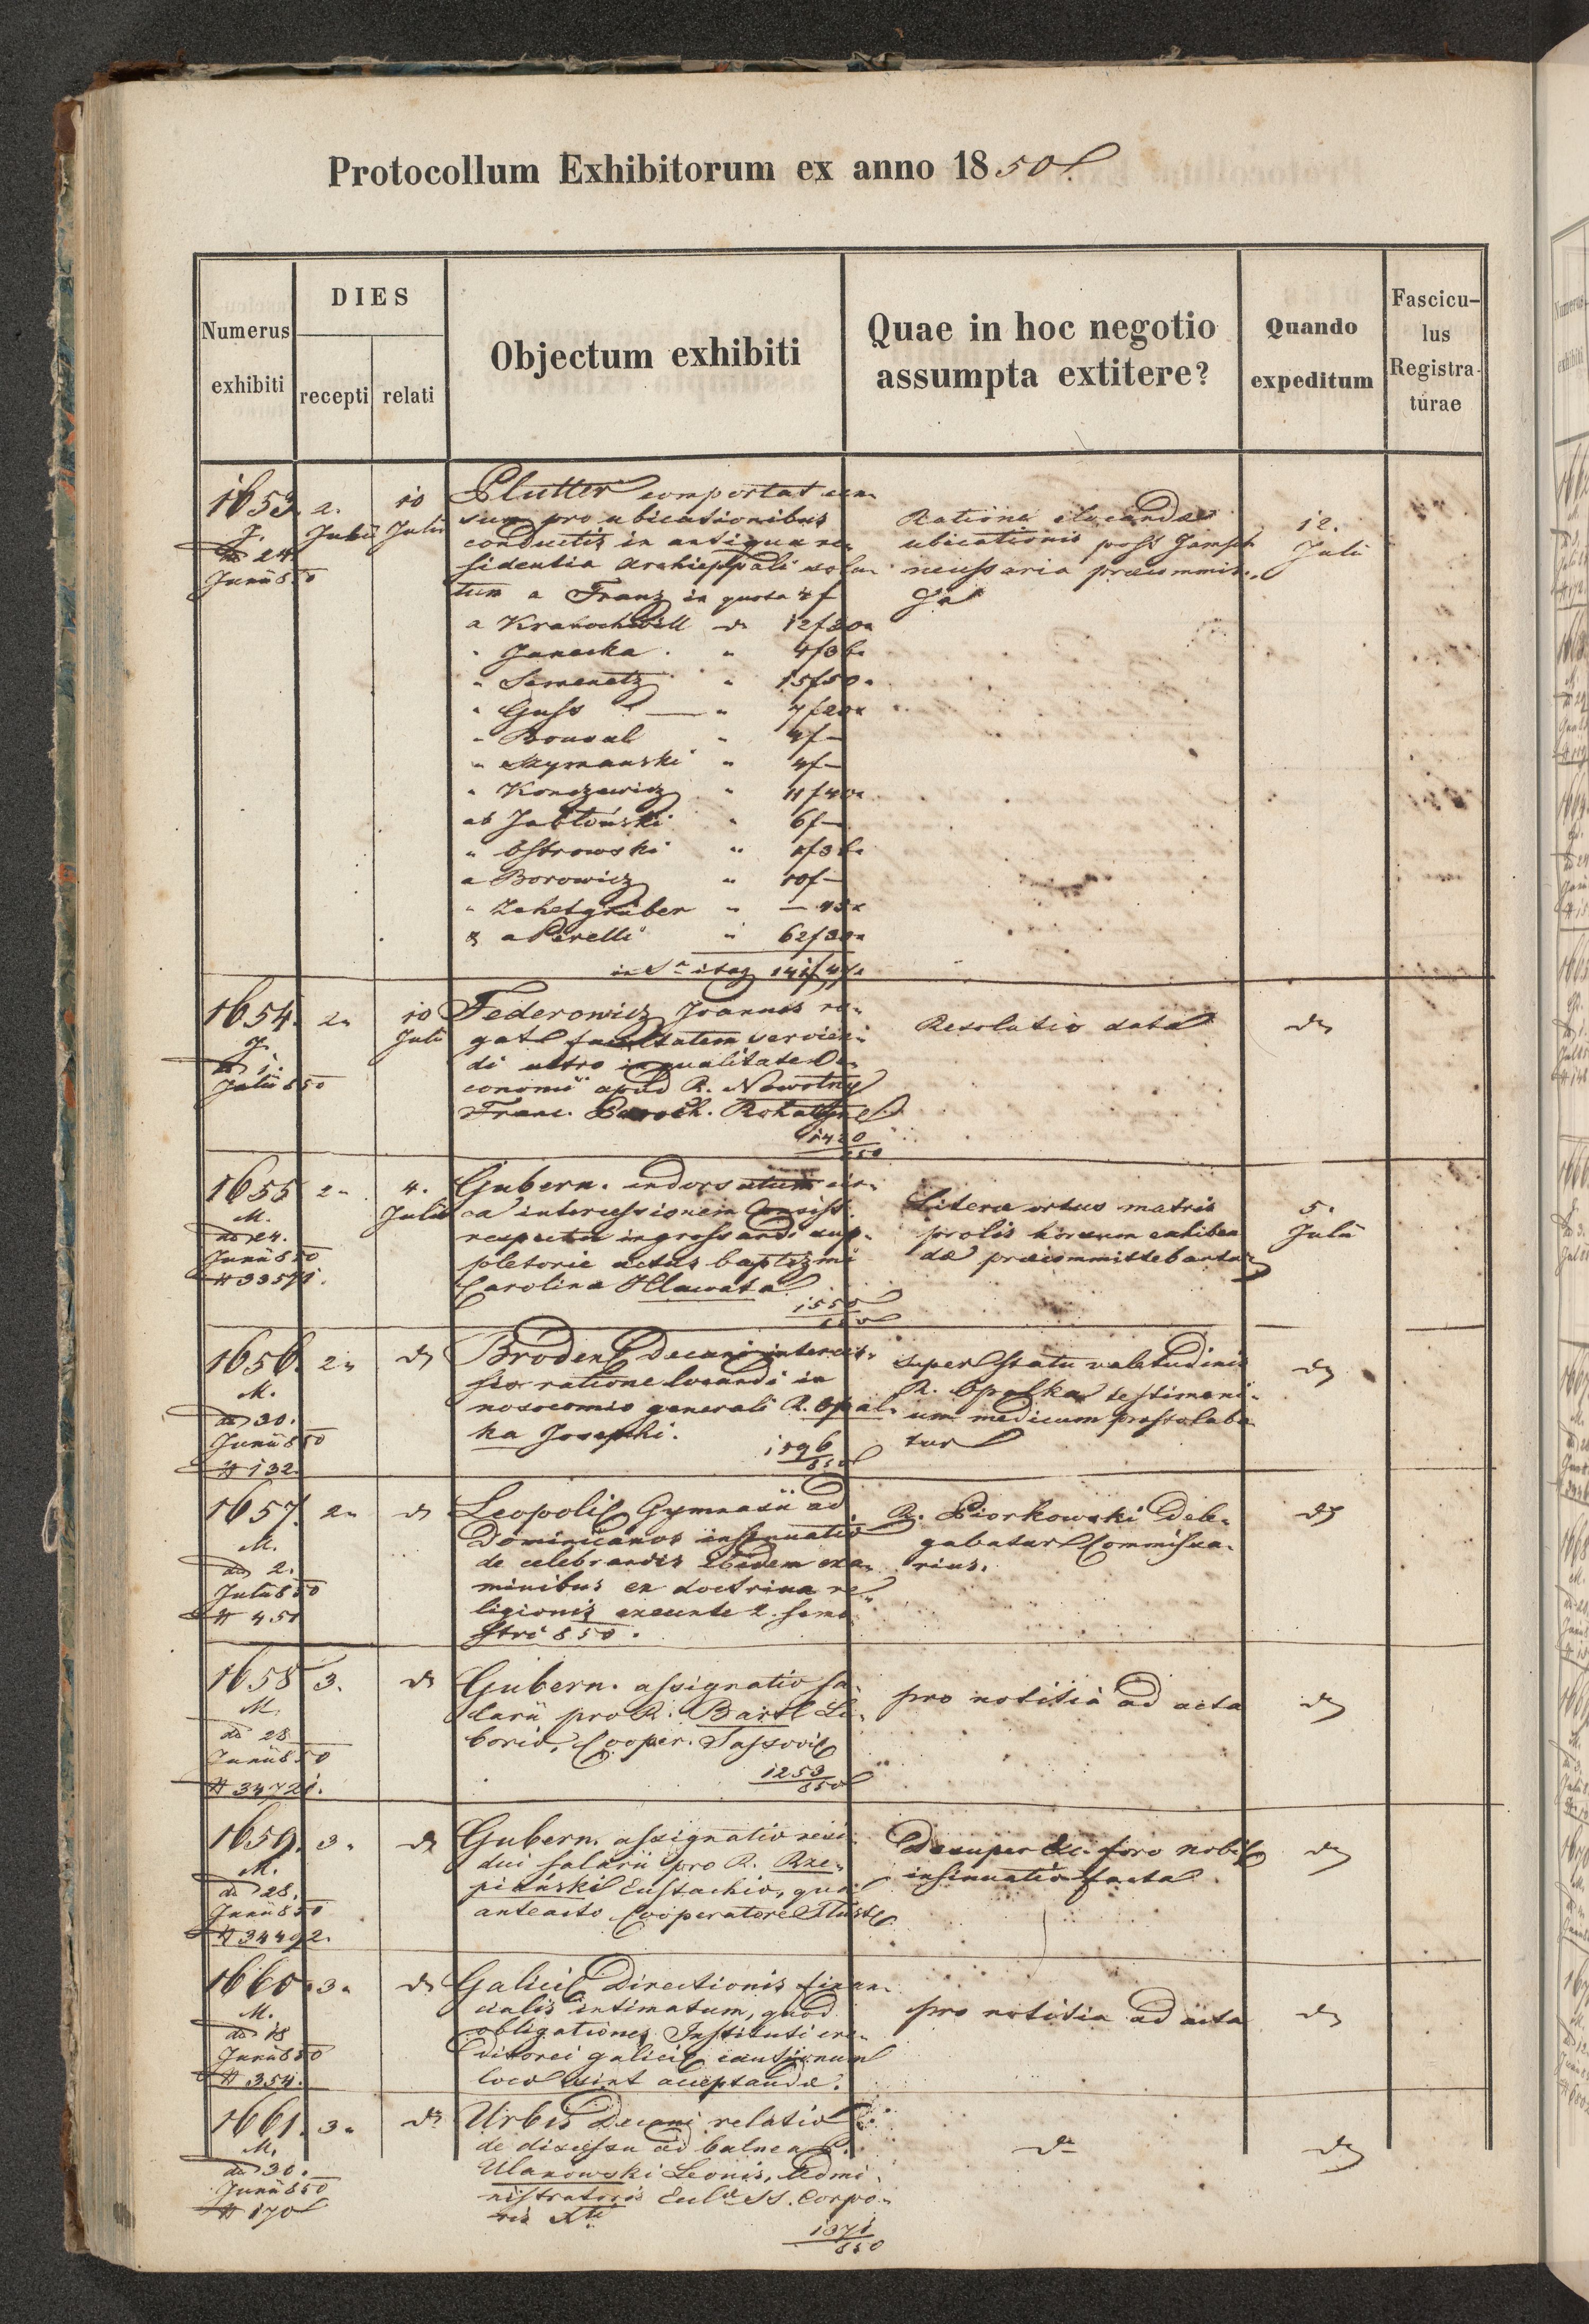 Protocollum Exhibitorum ex anno 1850
Numerus exhibiti
DIES
recepti
relati
Objectum exhibiti
Quae in hoc negotio assumpta extitere?
Quando expeditum
Fascicu-
lus
Registra-
turae
1653.
J.
dd 24
Junii 850
2.
Julii
10
Julii
Plutter comportat cen-
sum pro ubicationibus
conductis in antiqua re-
sidentia Archieppali solu-
tum a Franz in quota 4f
a Kratochwill do 12f30x
" Janecka " 4f36x
" Semenetz " 15f50x
" Guss " 7f20x
" Bousal " 4f—
" Szymanski " 4f—
" Konczewicz " 11f40x
ab Jabłoński " 6f—
" Ostrowski "
a Borowicz " 10f—
" Zehetgruber " — 45x
& a Pirelli " 62f30x
in Sa itaq
Ratione elocandae
ubicationis post
necessaria praeommit-
12.
Juli
1654.
J.
dd 1.
Julii 850
2"
10
Juli
Federowicz Joannes ro-
gat facultatem servien-
di ultro in qualitate Oe-
conomi apud R. Nowotny
Franc. Paroch. Rohatyne
1420
850
Resolutio data
do
1655
M.
dd 24.
Junii 850
# 33571.
2"
4.
Julii
Gubern. indorsatum cir-
ca intercessionem Consist.
respectu ingrossandi sup-
pletorie actus baptizmi
Carolina Hlawata
1550
850
Litera ortus matris
prolis horsum exhiben
dae praeommittebantur
5.
Julii
1656.
M.
dd 30.
Junii 850
# 132
2"
do
Brodens Decani interces-
sio ratione locandi in
nosocomio generali R. Opal-
ka Josephi.
1596
850
super statu valetudinis
R. Opalka testimoni-
um medicum postolaba
tur
do
1657.
M.
dd 2.
Julii 850
# 451
2"
do
Leopolis Gymnasii ad
Dominicanos insinuatio
de celebrandis ibidem exa-
minibus ex doctrina re-
ligionis exeunte 2. seme-
stri 850.
R. Piorkowski dele-
gabatur Commissa-
rius.
do
1658
M.
dd 28
Junii 850
# 34721.
3.
do
Gubern. assignatio sa-
larii pro R. Bartl Li-
borio, Cooper. Sassovi
1253
850
pro notitia ad acta
do
1659.
M.
dd 28.
Junii 850
# 34492.
3"
do
Gubern. assignatio resi-
dui salarii pro R. Rze-
piański Eustachio, qua
anteacto Cooperatore Tłuste
Desuper &c. foro nobil
insinuatio facta
do
1660.
M.
dd 18
Junii 850
# 354.
3"
do
Galicie Directionis finan-
cialis intimatum, quod
obligationes Instituti cre-
ditorei galicie cautionum
loco sint acceptandae.
pro notitia ad acta
do
1661.
M.
dd 30.
Junii 850
# 170
3"
do
Urbis Decani relatio
de discessu ad balnea R.
Ulanowski Leonis, Admi-
nistratoris Eccl. SS. Corpo-
ris Xti
1371
850
do
do